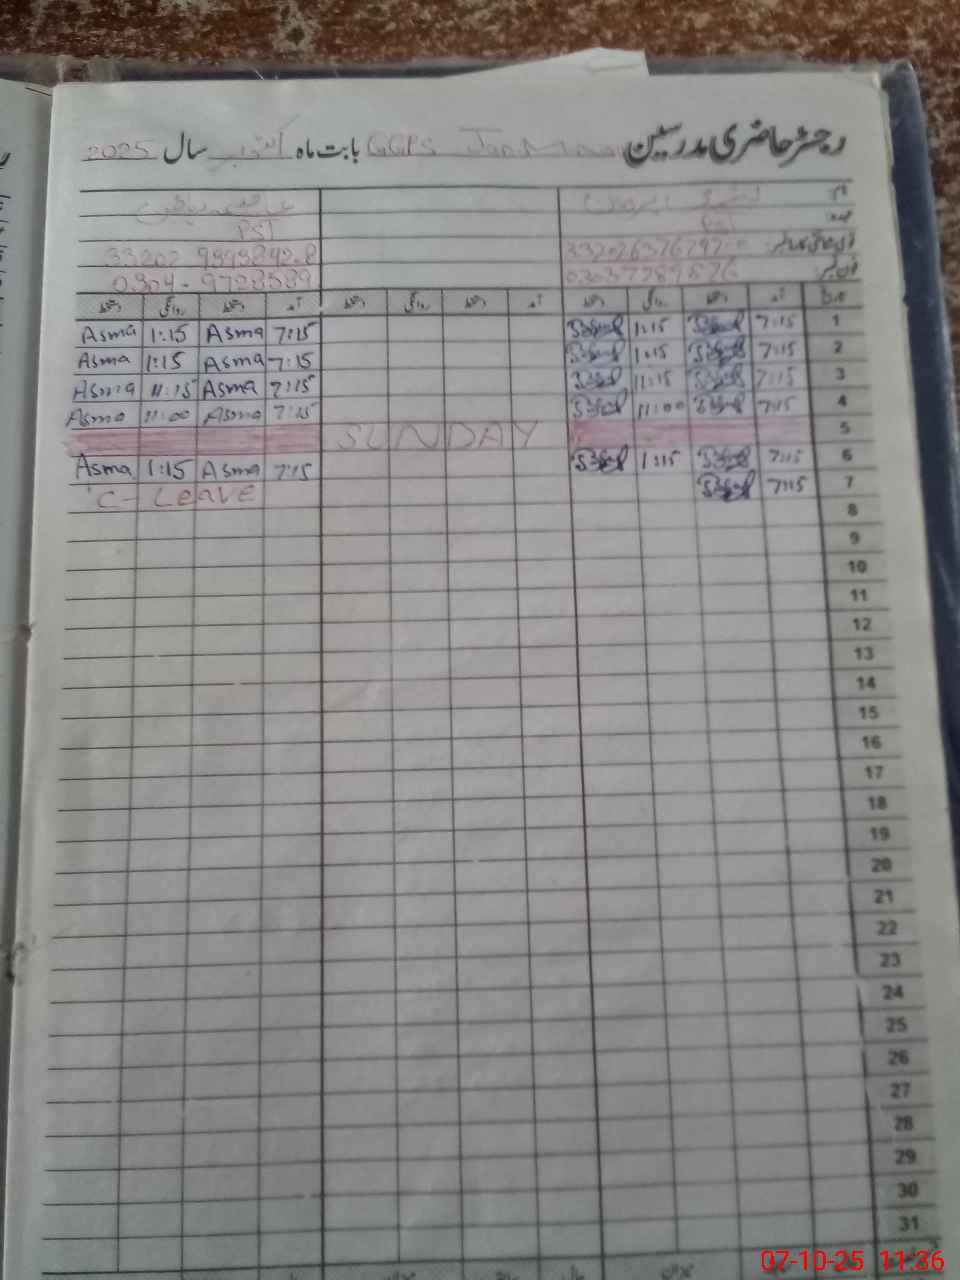 رجسٹر حاضری مدرسین GGPS بابت ماہ اکتوبر سال 2025
PST PST
33202 9393842-8
0304-9728589 03037789576
آمد دستخط روانگی دستخط آمد دستخط روانگی دستخط آمد دستخط روانگی دستخط
Asma 1:15 Asma 7:15 1:15 7:15 1
Asma 1:15 Asma 7:15 1:15 7:15 2
Asma 11:15 Asma 7:15 11:15 7:15 3
Asma 11:00 Asma 7:15 11:00 7:15 4
SUNDAY 5
Asma 1:15 Asma 7:15 1:15 7:15 6
C-Leave 7:15 7
8
9
10
11
12
13
14
15
16
17
18
19
20
21
22
23
24
25
26
27
28
29
30
31
07-10-25 11:36